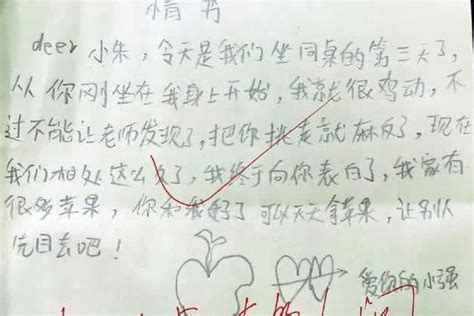 情书
deer 小朱,今天是我们坐同桌的第三天了,
从你刚坐在我身上开始,我就很鸡动,不
过不能让老师发现了,把你挑走就麻反了,现在
我们相处这么久了,我终于向你表白了,我家有
很多苹果,你和我好了可以天天拿苹果,让别人
先目去吧!
爱你的小强